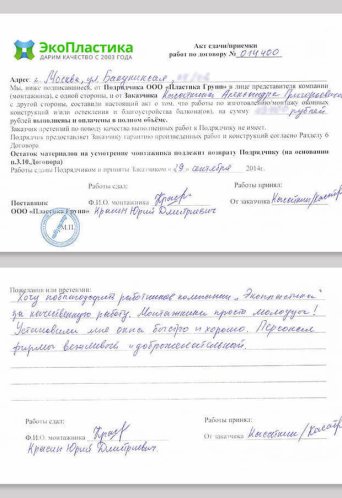 ЭкоПластика
ДАРИМ КАЧЕСТВО С 2003 ГОДА
Акт сдачи/приемки
работ по договору № 014400
Адрес г. Москва, ул. Бакунинская,
Мы, ниже подписавшиеся, от Подрядчика ООО «Пластика Групп» в лице представителя компании
(монтажника), с одной стороны, и от Заказчика Александра Григорьевича
с другой стороны, составили настоящий акт о том, что работы по изготовлению/монтажу оконных
конструкций и/или остеклению и благоустройства балкона(ов), на сумму рублей
рублей выполнены и оплачены в полном объёме.
Заказчик претензий по поводу качества выполненных работ к Подрядчику не имеет.
Подрядчик предоставляет Заказчику гарантию произведенных работ и конструкций согласно Разделу 6
Договора
Остаток материалов на усмотрение монтажника подлежит возврату Подрядчику (на основании
п.3.10.Договора)
Работы сданы Подрядчиком и приняты Заказчиком « 29 » октября 2014г.
Работы сдал: Работы принял:
Поставщик Ф.И.О. монтажника От заказчика
ООО «Пластика Групп» Крысин Юрий Дмитриевич
М.П.
Пожелания или претензии:
Хочу поблагодарить работников компании „Экопластика"
за качественную работу. Монтажники просто молодцы!
Установили мне окна быстро и хорошо. Персонал
фирмы вежливый и доброжелательный.
Работы сдал: Работы принял:
Ф.И.О. монтажника От заказчика
Крысин Юрий Дмитриевич.